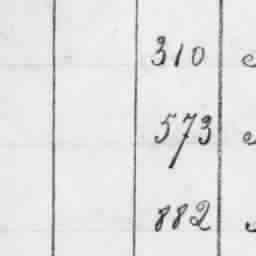 310
573
882